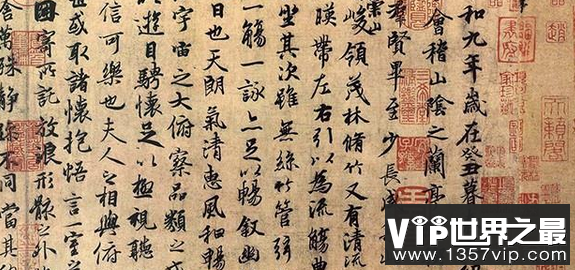 和九年歲在癸丑暮
會稽山陰之蘭亭
群賢畢至少長咸
崇山峻領茂林脩竹又有清流
暎帶左右引以為流觴曲
坐其次雖無絲竹管弦
一觴一詠亦足以暢敘幽
日也天朗氣清惠風和暢
宇宙之大俯察品類之
遊目騁懷足以極視聽
信可樂也夫人之相與俯
世或取諸懷抱悟言一室之
因寄所託放浪形骸之外
舍萬殊靜躁不同當其
VIP世界之最
www.1357vip.com